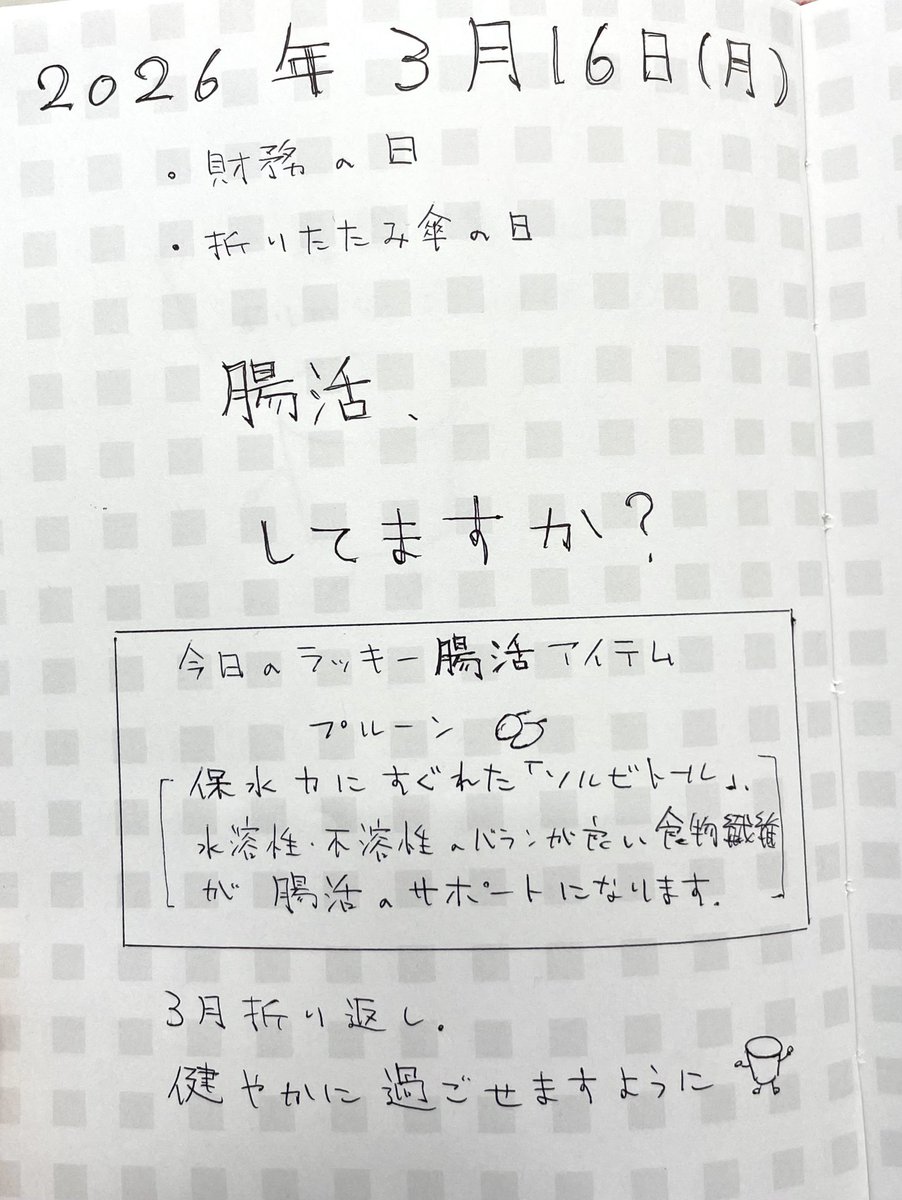 2026年3月16日(月)
・財務の日
・折りたたみ傘の日
腸活、
してますか?
今日のラッキー腸活アイテム
プルーン
保水力にすぐれた「ソルビトール」、
水溶性・不溶性のバランが良い食物繊維
が腸活のサポートになります.
3月折り返し.
健やかに過ごせますように